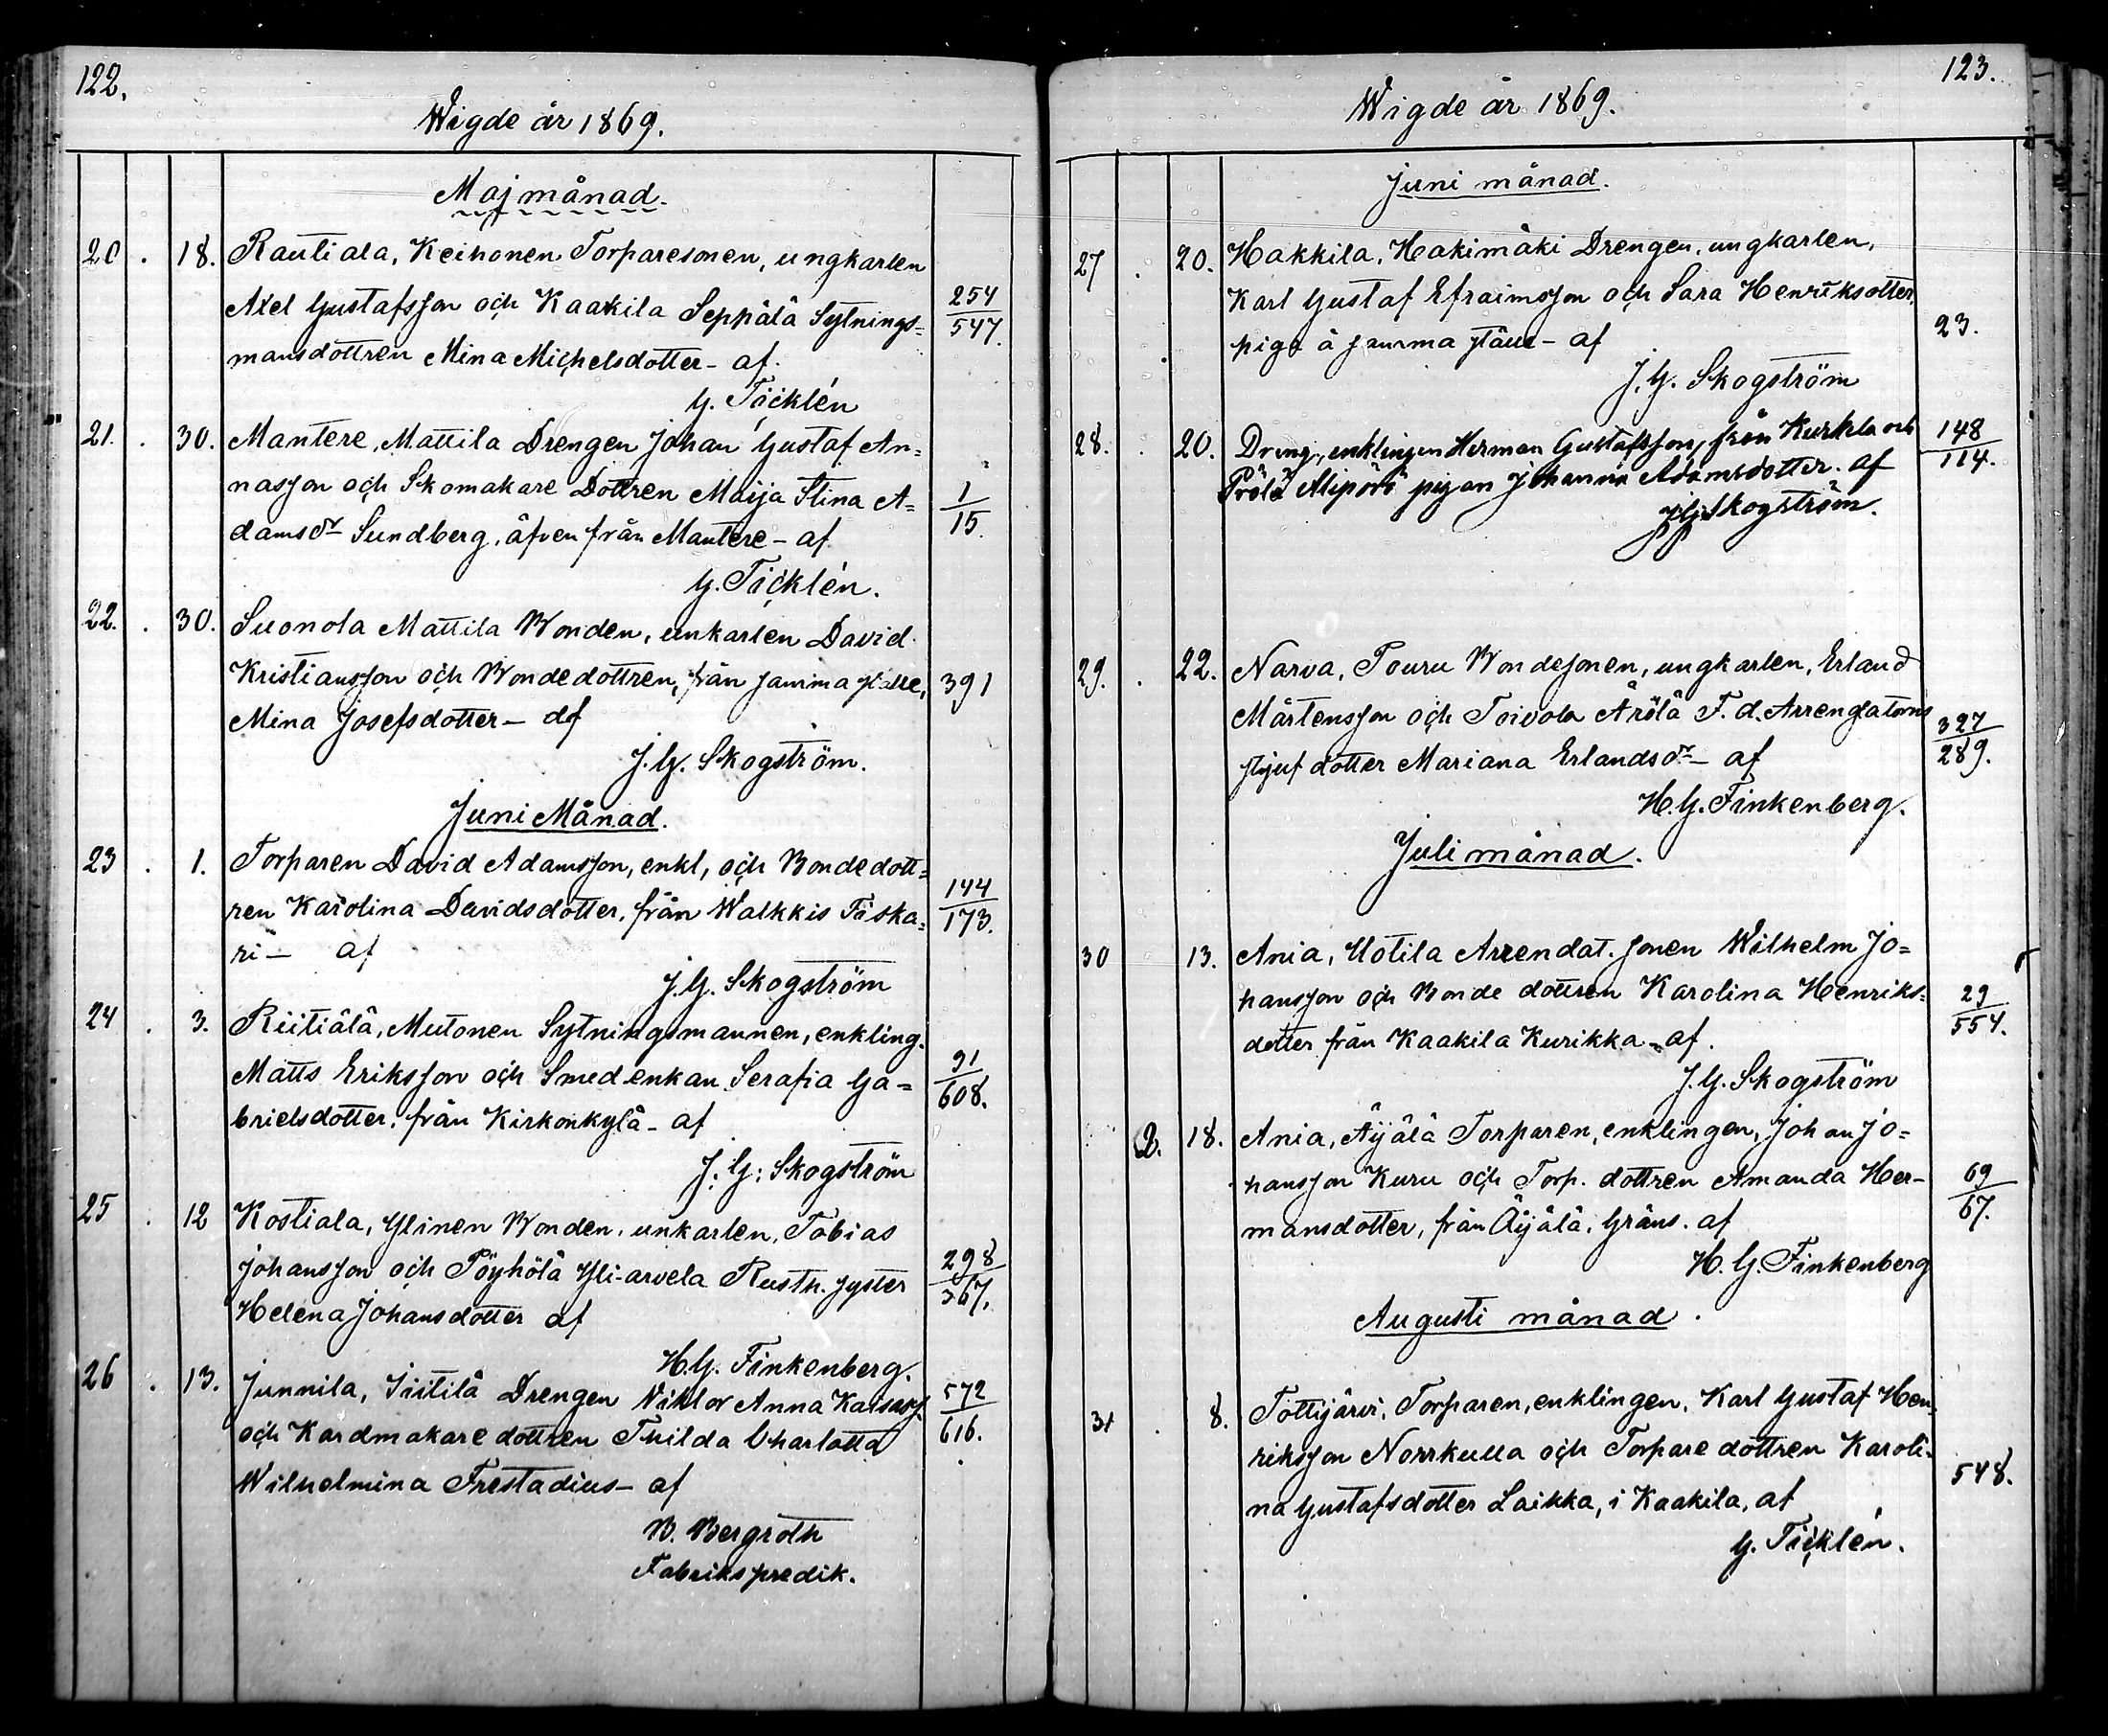 122.
Wigde år 1869.
Maj månad.
20 . 18. Rautiala, Keihonen Torparesonen, ungkarlen
Axel Gustafsson och Kaakila Seppälä Sytnings= 254/547.
mansdottren Mina Michelsdotter - af
G. Täcklén
21. . 30. Mantere, Mattila Drengen Johan Gustaf An=
nasson och Skomakare Dottren Maija Stina A= 1/15.
damsdr Sundberg, äfven från Mantere - af
G. Täcklén.
22. . 30. Suonola Mattila Bonden, unkarlen David
Kristiansson och Bondedottren, från samma ställe, 391
Mina Josefsdotter - af
J. G. Skogström.
Juni Månad.
23 . 1. Torparen David Adamsson, enkl, och Bondedott= 144/173.
ren Karolina Davidsdotter, från Walkkis Fiska=
ri - af
J. G. Skogström
24 . 3. Riitiälä, Mutonen Sytningsmannen, enkling.
Matts Eriksson och Smedenkan Serafia Ga= 91/608.
brielsdotter, från Kirkonkylä - af
J. G. Skogström
25 . 12 Kostiala, Ylinen Bonden, unkarlen, Tobias
Johansson och Pöyhölä Yli-arvela Rusth. syster 298/367.
Helena Johansdotter af
H. G. Finkenberg.
26 . 13. Junnila, Iiitilä Drengen Viktor Anna Kaisass. 572/616.
och Kardmakare dottren Thilda Charlotta
Wilhelmina Frestadius - af
B. Bergroth
Fabrikspredik.
123.
Wigde år 1869.
Juni månad.
27 . 20. Hakkila, Hakimäki Drengen, ungkarlen,
Karl Gustaf Efraimsson och Sara Henriksotter, 23.
piga å samma ställe - af
J. G. Skogström
28. . 20. Dreng, enklingen Herman Gustafsson, från Kurkela och 148/114.
Prölä Alipörö pigan Johanna Adamsdotter. af
J. G. Skogström.
29. . 22. Narva, Pouru Bondesonen, ungkarlen, Erland
Mårtensson och Toivola Arölä F. d. Arrendatorns 327/289.
styufdotter Mariana Erlandsdr - af
H. G. Finkenberg.
Juli månad.
30 13. Ania, Uotila Arrendat. sonen Wilhelm Jo=
hansson och Bonde dottren Karolina Henriks= 29/554.
dotter från Kaakila Kurikka - af.
J. G. Skogström
D. 18. Ania, Äijälä Torparen, enklingen, Johan Jo=
hansson Kuru och Torp. dottren Amanda Her- 69/67.
mansdotter, från Äijälä, Gräns. af
H. G. Finkenberg
Augusti månad.
31 . 8. Tottijärvi, Torparen, enklingen, Karl Gustaf Hen=
riksson Norrkulla och Torpare dottren Karoli= 548.
na Gustafsdotter Laikka, i Kaakila, af
G. Täcklén.